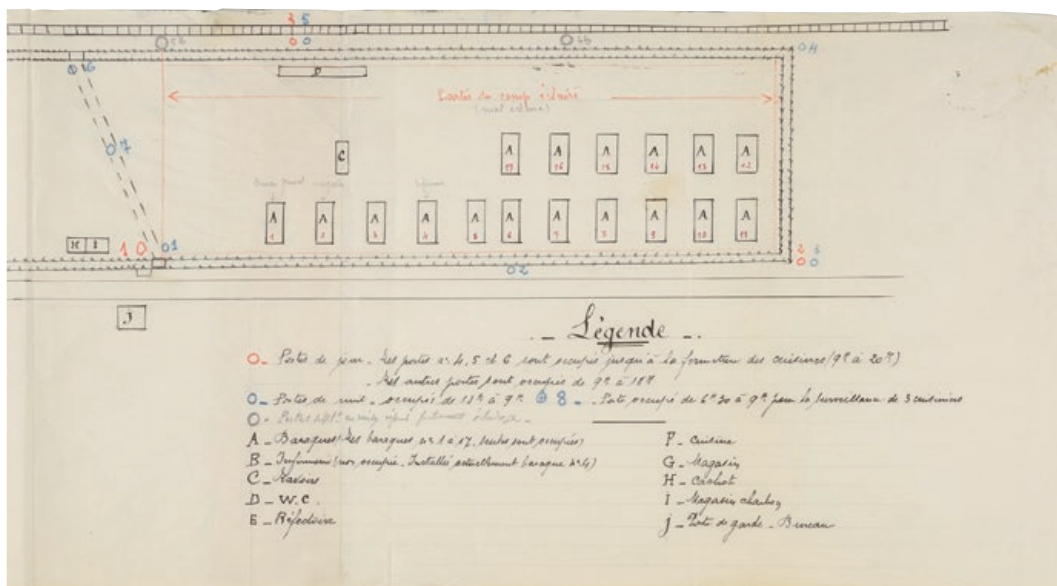 3 5
4
6
D
Partie du camp éclairé
7
C
A 17 A 16 A 15 A 14 A 13 A 12
A 1 A 2 A 3 A 4 A 5 A 6 A 7 A 8 A 9 A 10 A 11
H I 1 1
2 3
2
J
Légende
- Postes de jour - Les postes nos 4, 5 et 6 sont occupés jusqu'à la fermeture des cuisines (9h à 20h)
- Les autres postes sont occupés de 9h à 18h
- Postes de nuit - occupés de 18h à 9h 8 - Poste occupé de 6h30 à 9h pour la surveillance de 3 cuisiniers
A - Baraques (Les baraques nos 1 à 17, seules sont occupées)
B - Infirmerie (non occupée. Installée actuellement baraque no 4)
C - Lavoirs
D - W.C.
E - Réfectoire
F - Cuisine
G - Magasin
H - Cachot
I - Magasin charbon
J - Poste de garde - Bureau